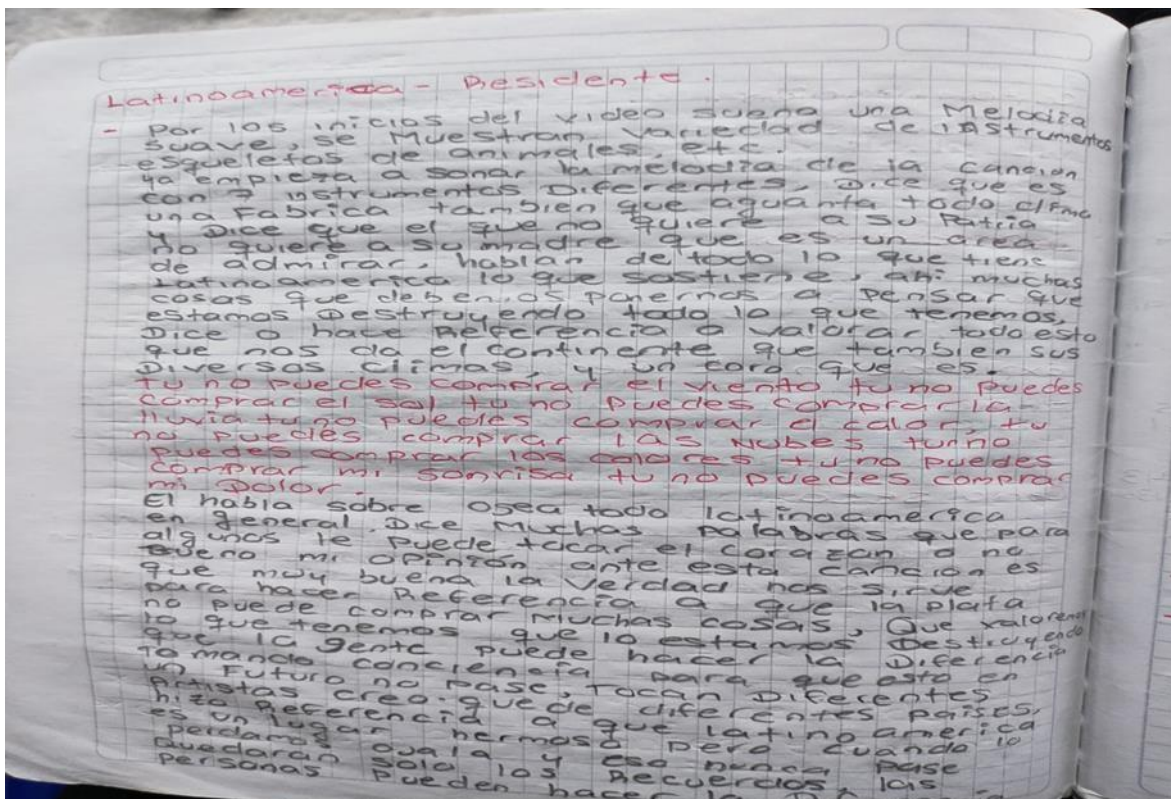 Latinoamerica - Residente.
- Por los inicios del video suena una Melodia
suave, se Muestran variedad de instrumentos
esqueletos de animales, etc.
ya empieza a sonar la melodia de la cancion
con 7 instrumentos Diferentes, Dice que es
una Fabrica tambien que aguanta todo clima
y Dice que el que no quiere a su Patria
no quiere a su madre que es un area
de admirar, hablan de todo lo que tiene
Latinoamerica lo que sostiene, ahi muchas
cosas que debemos ponernos a pensar que
estamos Destruyendo todo lo que tenemos,
Dice o hace Referencia a valorar todo esto
que nos da el continente que tambien sus
Diversos climas, y un coro que es.
tu no puedes comprar el viento tu no puedes
comprar el sol tu no puedes comprar la
lluvia tu no puedes comprar el calor, tu
no puedes comprar las Nubes tu no
puedes comprar los colores tu no puedes
comprar mi sonrisa tu no puedes comprar
mi Dolor.
El habla sobre osea todo latinoamerica
en general. Dice Muchas palabras que para
algunos le puede tocar el corazon o no
bueno mi opinión ante esta cancion es
que muy buena la verdad nos sirve
para hacer Referencia a que la plata
no puede comprar Muchas cosas, Que valoremos
lo que tenemos que lo estamos Destruyendo
que la gente puede hacer la Diferencia
tomando conciencia para que esto en
un Futuro no pase, Tocan Diferentes
artistas creo que de diferentes paises,
hizo Referencia a que latinoamerica
es un lugar hermoso pero cuando lo
perdamos ojala y eso nunca pase
quedaran solo los Recuerdos, las
personas pueden hacer la